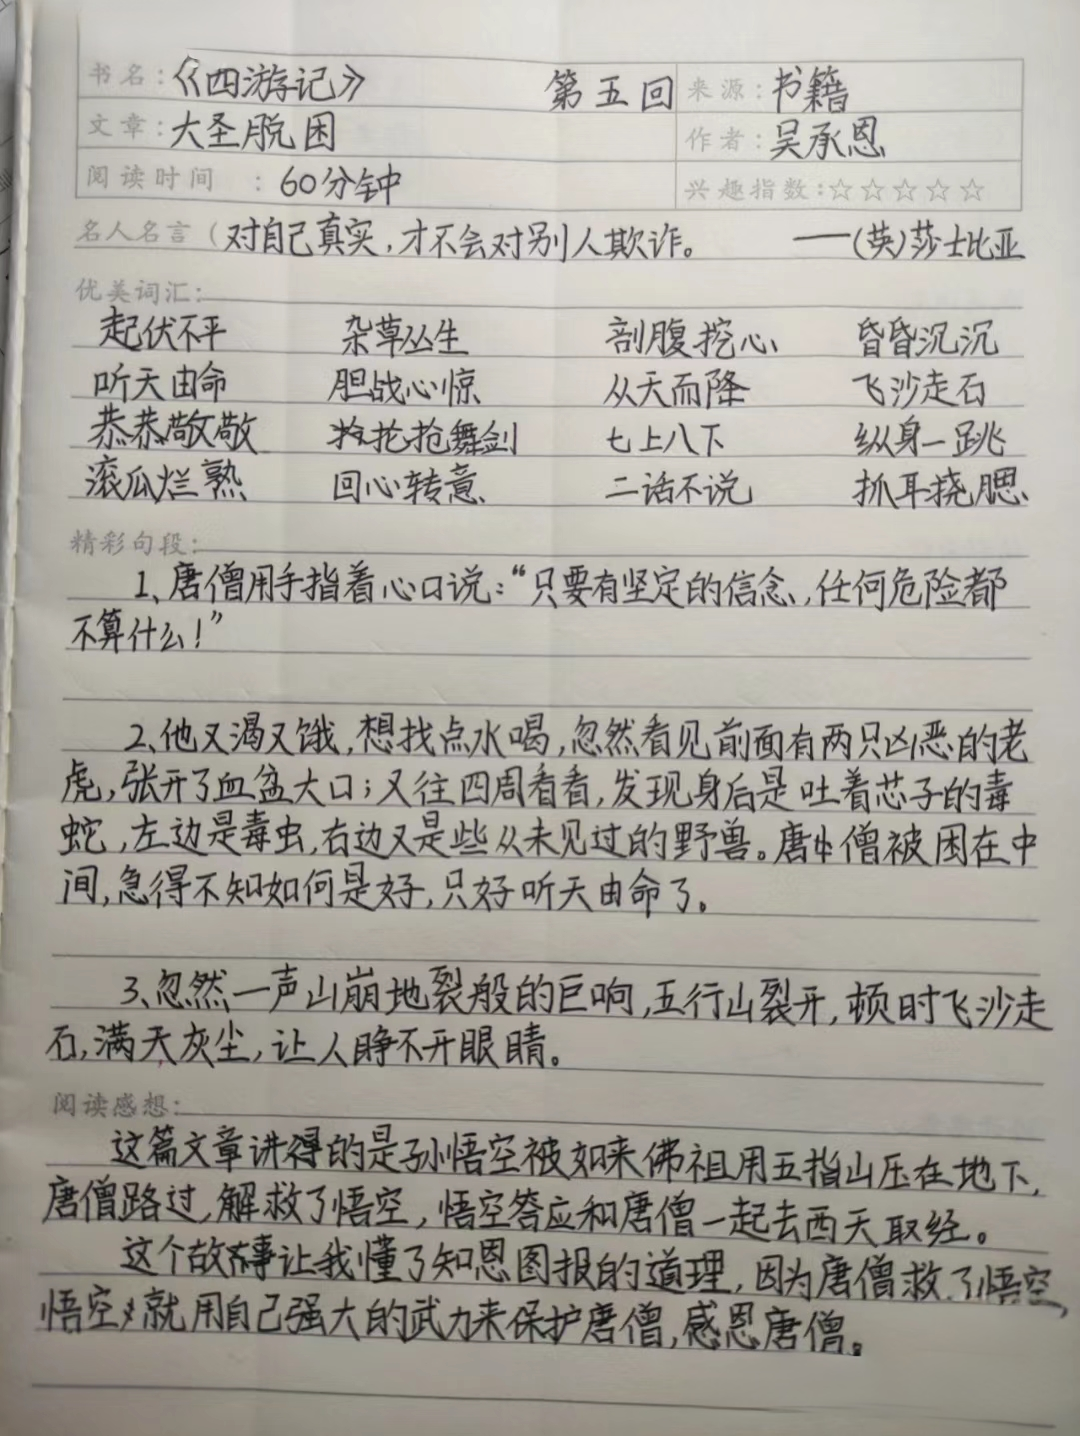 书名：《西游记》 第五回 来源：书籍
文章：大圣脱困 作者：吴承恩
阅读时间 ：60分钟 兴趣指数：☆☆☆☆☆
名人名言（对自己真实，才不会对别人欺诈。 ——(英)莎士比亚
优美词汇：
起伏不平 杂草丛生 剖腹挖心 昏昏沉沉
听天由命 胆战心惊 从天而降 飞沙走石
恭恭敬敬 抡枪舞剑 七上八下 纵身一跳
滚瓜烂熟 回心转意 二话不说 抓耳挠腮
精彩句段：
1、唐僧用手指着心口说：“只要有坚定的信念，任何危险都
不算什么！”
2、他又渴又饿，想找点水喝，忽然看见前面有两只凶恶的老
虎，张开了血盆大口；又往四周看看，发现身后是吐着芯子的毒
蛇，左边是毒虫，右边又是些从未见过的野兽。唐僧被困在中
间，急得不知如何是好，只好听天由命了。
3、忽然一声山崩地裂般的巨响，五行山裂开，顿时飞沙走
石，满天灰尘，让人睁不开眼睛。
阅读感想：
这篇文章讲得的是孙悟空被如来佛祖用五指山压在地下，
唐僧路过，解救了悟空，悟空答应和唐僧一起去西天取经。
这个故事让我懂了知恩图报的道理，因为唐僧救了悟空，
悟空就用自己强大的武力来保护唐僧，感恩唐僧。